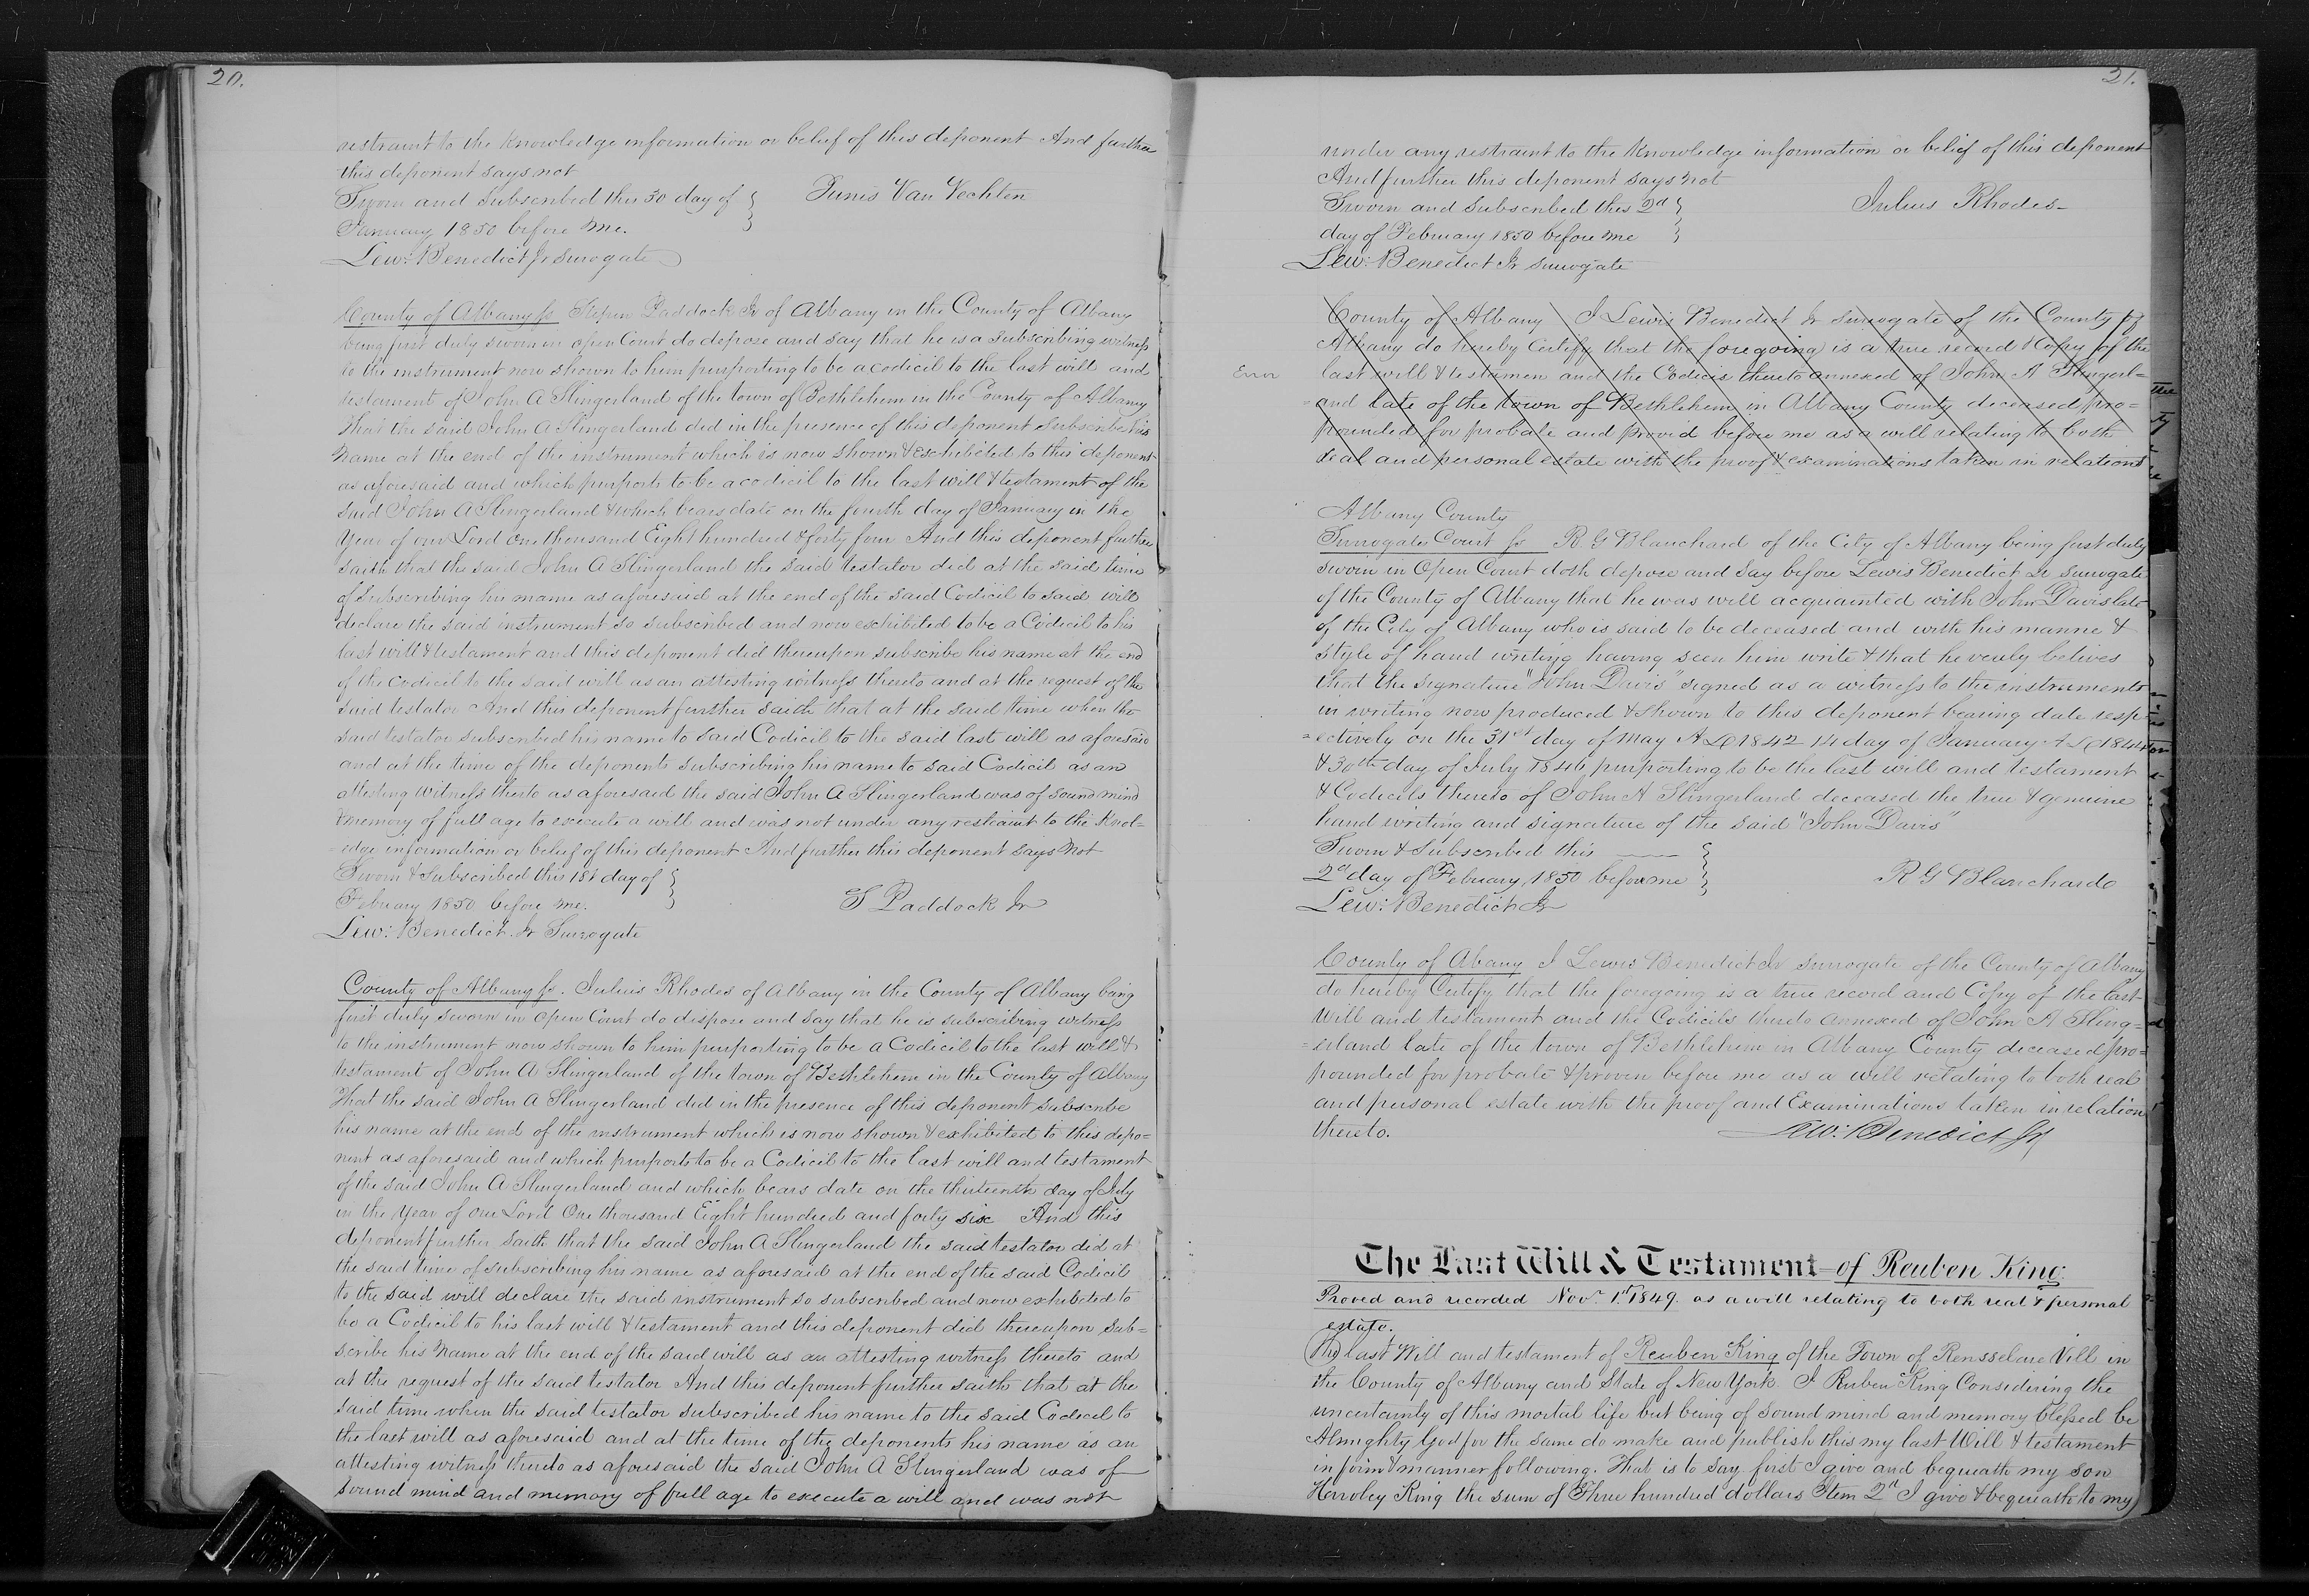 20.
restraint to the knowledge information or belief of this deponent And further
this deponent says not
Sworn and subscribed this 30 day of
January 1850 before me.
Tunis Van Vechten
Lew: Benedict Jr Surrogate
County of Albany ss Stepen Paddock Jr of Albany in the County of Albany
being first duly sworn in open Court do depose and say that he is a subscribing witness
to the instrument now shown to him purporting to be a codicil to the last will and
testament of John A Slingerland of the town of Bethlehem in the County of Albany
That the said John A Slingerland did in the presence of this deponent subscribe his
name at the end of the instrument which is now shown & exhibited to this deponent
as aforesaid and which purports to be a codicil to the last will & testament of the
said John A Slingerland & which bears date on the fourth day of January in the
year of our Lord one thousand Eight hundred & forty four And this deponent further
saith that the said John A Slingerland the said testator did at the said time
of subscribing his name as aforesaid at the end of the said Codicil to said will
declare the said instrument so subscribed and now exhibited to be a Codicil to his
last will & testament and this deponent did thereupon subscribe his name at the end
of the codicil to the said will as an attesting witness thereto and at the request of the
said testator And this deponent further saith that at the said time when the
said testator subscribed his name to said Codicil to the said last will as aforesaid
and at the time of the deponents subscribing his name to said Codicil as an
attesting witness thereto as aforesaid the said John A Slingerland was of sound mind
& memory of full age to execute a will and was not under any restraint to the Knol=
=edge information or belief of this deponent And further this deponent says not
Sworn & subscribed this 1st day of
February 1850 before me.
S Paddock Jr
Lew: Benedict Jr Surrogate
County of Albany ss. Julius Rhodes of Albany in the County of Albany being
first duly sworn in open Court do dispose and say that he is subscribing witness
to the instrument now shown to him purporting to be a Codicil to the last will &
testament of John A Slingerland of the town of Bethlehem in the County of Albany
That the said John A Slingerland did in the presence of this deponent subscribe
his name at the end of the instrument which is now shown & exhibited to this depo=
nent as aforesaid and which purports to be a Codicil to the last will and testament
of the said John A Slingerland and which bears date on the thirteenth day of July
in the year of our Lord One thousand Eight hundred and forty six And this
deponent further saith that the said John A Slingerland the said testator did at
the said time of subscribing his name as aforesaid at the end of the said Codicil
to the said will declare the said instrument so subscribed and now exhibited to
be a Codicil to his last will & testament and this deponent did thereupon sub=
scribe his name at the end of the said will as an attesting witness thereto and
at the request of the said testator And this deponent further saith that at the
said time when the said testator subscribed his name to the said Codicil to
the last will as aforesaid and at the time of the deponents his name as an
attesting witness thereto as aforesaid the said John A Slingerland was of
sound mind and memory of full age to execute a will and was not
21.
under any restraint to the knowledge information or belief of this deponent
And further this deponent says not
Sworn and subscribed this 2d
day of February 1850 before me
Julius Rhodes
Lew: Benedict Jr Surrogate
County of Albany I Lewis Benedict Jr Surrogate of the County of
Albany do hereby Certify that the foregoing is a true record & Copy of the
Error
last will & testamen and the Codicis thereto annexed of John A Slingerl=
=and late of the town of Bethlehem in Albany County deceased pro=
pounded for probate and provid before me as a will relating to both
real and personal estate with the proof & examinations taken in relations
Albany County
Surrogates Court ss R G Blanchard of the City of Albany being first duly
sworn in Open Court doth depose and say before Lewis Benedict Jr surrogate
of the County of Albany that he was well acquainted with John Davis late
of the City of Albany who is said to be deceased and with his manne &
style of hand writing having seen him write & that he verily belives
that the signature "John Davis" signed as a witness to the instruments
in writing now produced & shown to this deponent bearing date resp
=ectively on the 31st day of May AD 1842 14 day of January AD 1844
& 30th day of July 1846 purporting to be the last will and testament
& Codicils thereto of John A Slingerland deceased the true & genuine
hand writing and signature of the said "John Davis"
Sworn & Subscribed this
2d day of February 1850 before me
R G Blanchard
Lew: Benedict Jr
County of Abany I Lewis Benedict Jr Surrogate of the County of Albany
do hereby Certify that the foregoing is a true record and Copy of the last
Will and testament and the Codicils thereto annexed of John A Sling=
=erland late of the town of Bethlehem in Albany County deceased pro=
pounded for probate & proven before me as a will relating to both real
and personal estate with the proof and Examinations taken in relation
thereto.
Lew: Benedict Jr
The Last Will & Testament of Reuben King.
Proved and recorded Novr. 1st 1849. as a will relating to both real & personal
estate.
The last Will and testament of Reuben King of the Town of Rensselare Vill in
the County of Albany and State of New York. I Ruben King Considering the
uncertainty of this mortal life but being of sound mind and memory blessed be
Almighty God for the same do make and publish this my last Will & testament
in form & manner following. That is to say first I give and bequeath my son
King the sum of Three hundred dollars Item 2d I give & bequeath to my